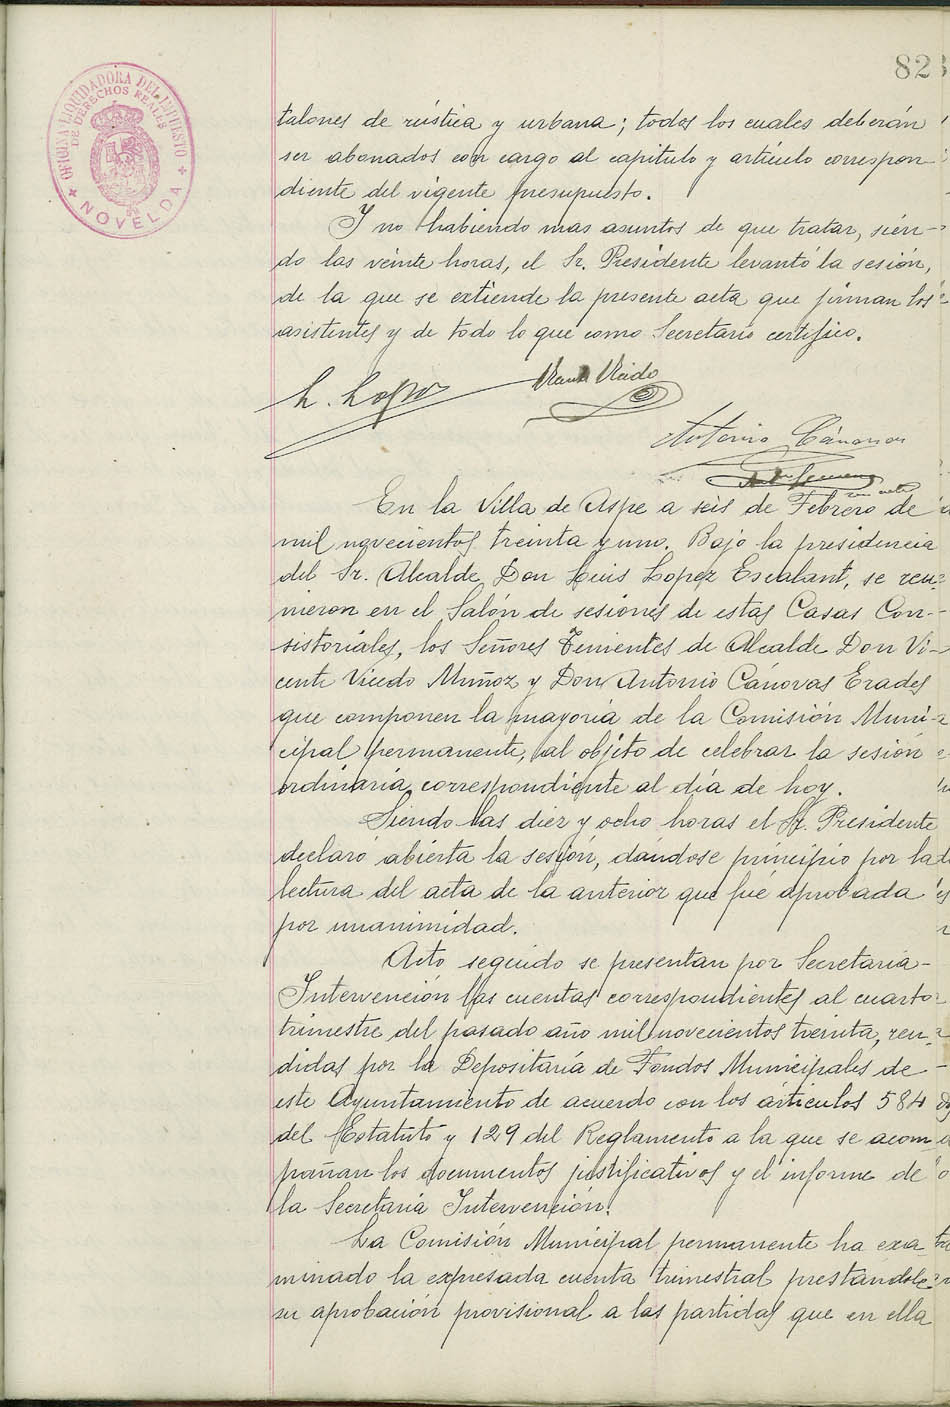 82
OFICINA LIQUIDADORA DEL IMPUESTO
DE DERECHOS REALES
NOVELDA
talones de rústica y urbana; todos los cuales deberán
ser abonados con cargo al capítulo y artículo correspon-
diente del vigente presupuesto.
Y no habiendo mas asuntos de que tratar, sien-
do las veinte horas, el Sr. Presidente levantó la sesión,
de la que se extiende la presente acta que firman los
asistentes y de todo lo que como Secretario certifico.
L. Lopez
Antonio Cánovas
En la Villa de Aspe a seis de Febrero de
mil novecientos treinta y uno. Bajo la presidencia
del Sr. Alcalde Don Luis Lopez Escalant, se reu-
nieron en el Salón de sesiones de estas Casas Con-
sistoriales, los Señores Tenientes de Alcalde Don Vi-
cente Vicedo Muñoz y Don Antonio Cánovas Erades
que componen la mayoría de la Comisión Muni-
cipal permanente, al objeto de celebrar la sesión
ordinaria correspondiente al día de hoy.
Siendo las diez y ocho horas el Sr. Presidente
declaró abierta la sesión, dándose principio por la
lectura del acta de la anterior que fué aprobada
por unanimidad.
Acto seguido se presentan por Secretaría-
Intervención las cuentas correspondientes al cuarto
trimestre del pasado año mil novecientos treinta, ren-
didas por la Depositaría de Fondos Municipales de
este Ayuntamiento de acuerdo con los artículos 584
del Estatuto y 129 del Reglamento a la que se acom-
pañan los documentos justificativos y el informe de
la Secretaría Intervención.
La Comisión Municipal permanente ha exa-
minado la expresada cuenta trimestral prestándole
su aprobación provisional a las partidas que en ella